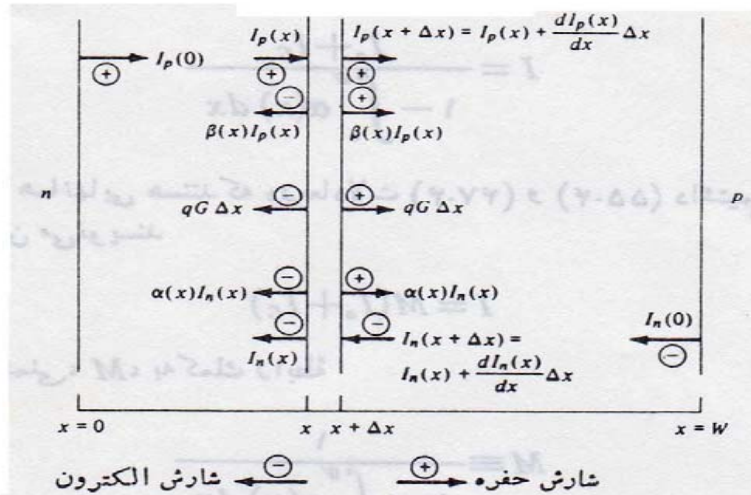 I_p(0)
I_p(x)
I_p(x + Δx) = I_p(x) + dI_p(x)/dx Δx
β(x)I_p(x)
β(x)I_p(x)
n
p
qG Δx
qG Δx
α(x)I_n(x)
α(x)I_n(x)
I_n(x)
I_n(x + Δx) =
I_n(x) + dI_n(x)/dx Δx
I_n(0)
x = 0
x
x + Δx
x = W
شارش الکترون
شارش حفره